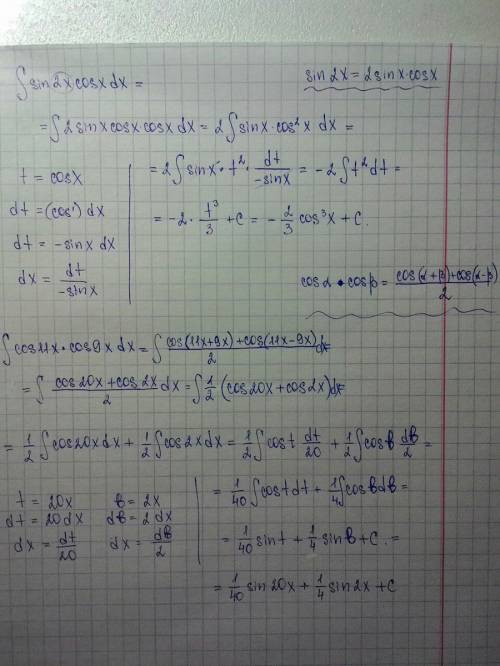 ∫ sin 2x cosx dx =
sin 2x = 2 sinx · cosx
= ∫ 2 sinx cosx cosx dx = 2 ∫ sinx · cos² x dx =
t = cosx
dt = (cos') dx
dt = -sinx dx
dx = dt/-sinx
= 2 ∫ sinx · t² · dt/-sinx = -2 ∫ t² dt =
= -2 · t³/3 + c = - 2/3 cos³x + C.
cosα · cosβ = cos(α+β)+cos(α-β)/2
∫ cos11x · cos9x dx = ∫ cos(11x+9x)+cos(11x-9x)/2 dx
= ∫ cos20x+cos2x/2 dx = ∫ 1/2 (cos20x+cos2x)dx=
= 1/2 ∫ cos20x dx + 1/2 ∫ cos2x dx = 1/2 ∫ cost dt/20 + 1/2 ∫ cosв dв/2 =
t = 20x в = 2x
dt = 20 dx dв = 2 dx
dx = dt/20 dx = dв/2
= 1/40 ∫ cost dt + 1/4 ∫ cosв dв =
= 1/40 sint + 1/4 sinв + C. =
= 1/40 sin20x + 1/4 sin2x + C